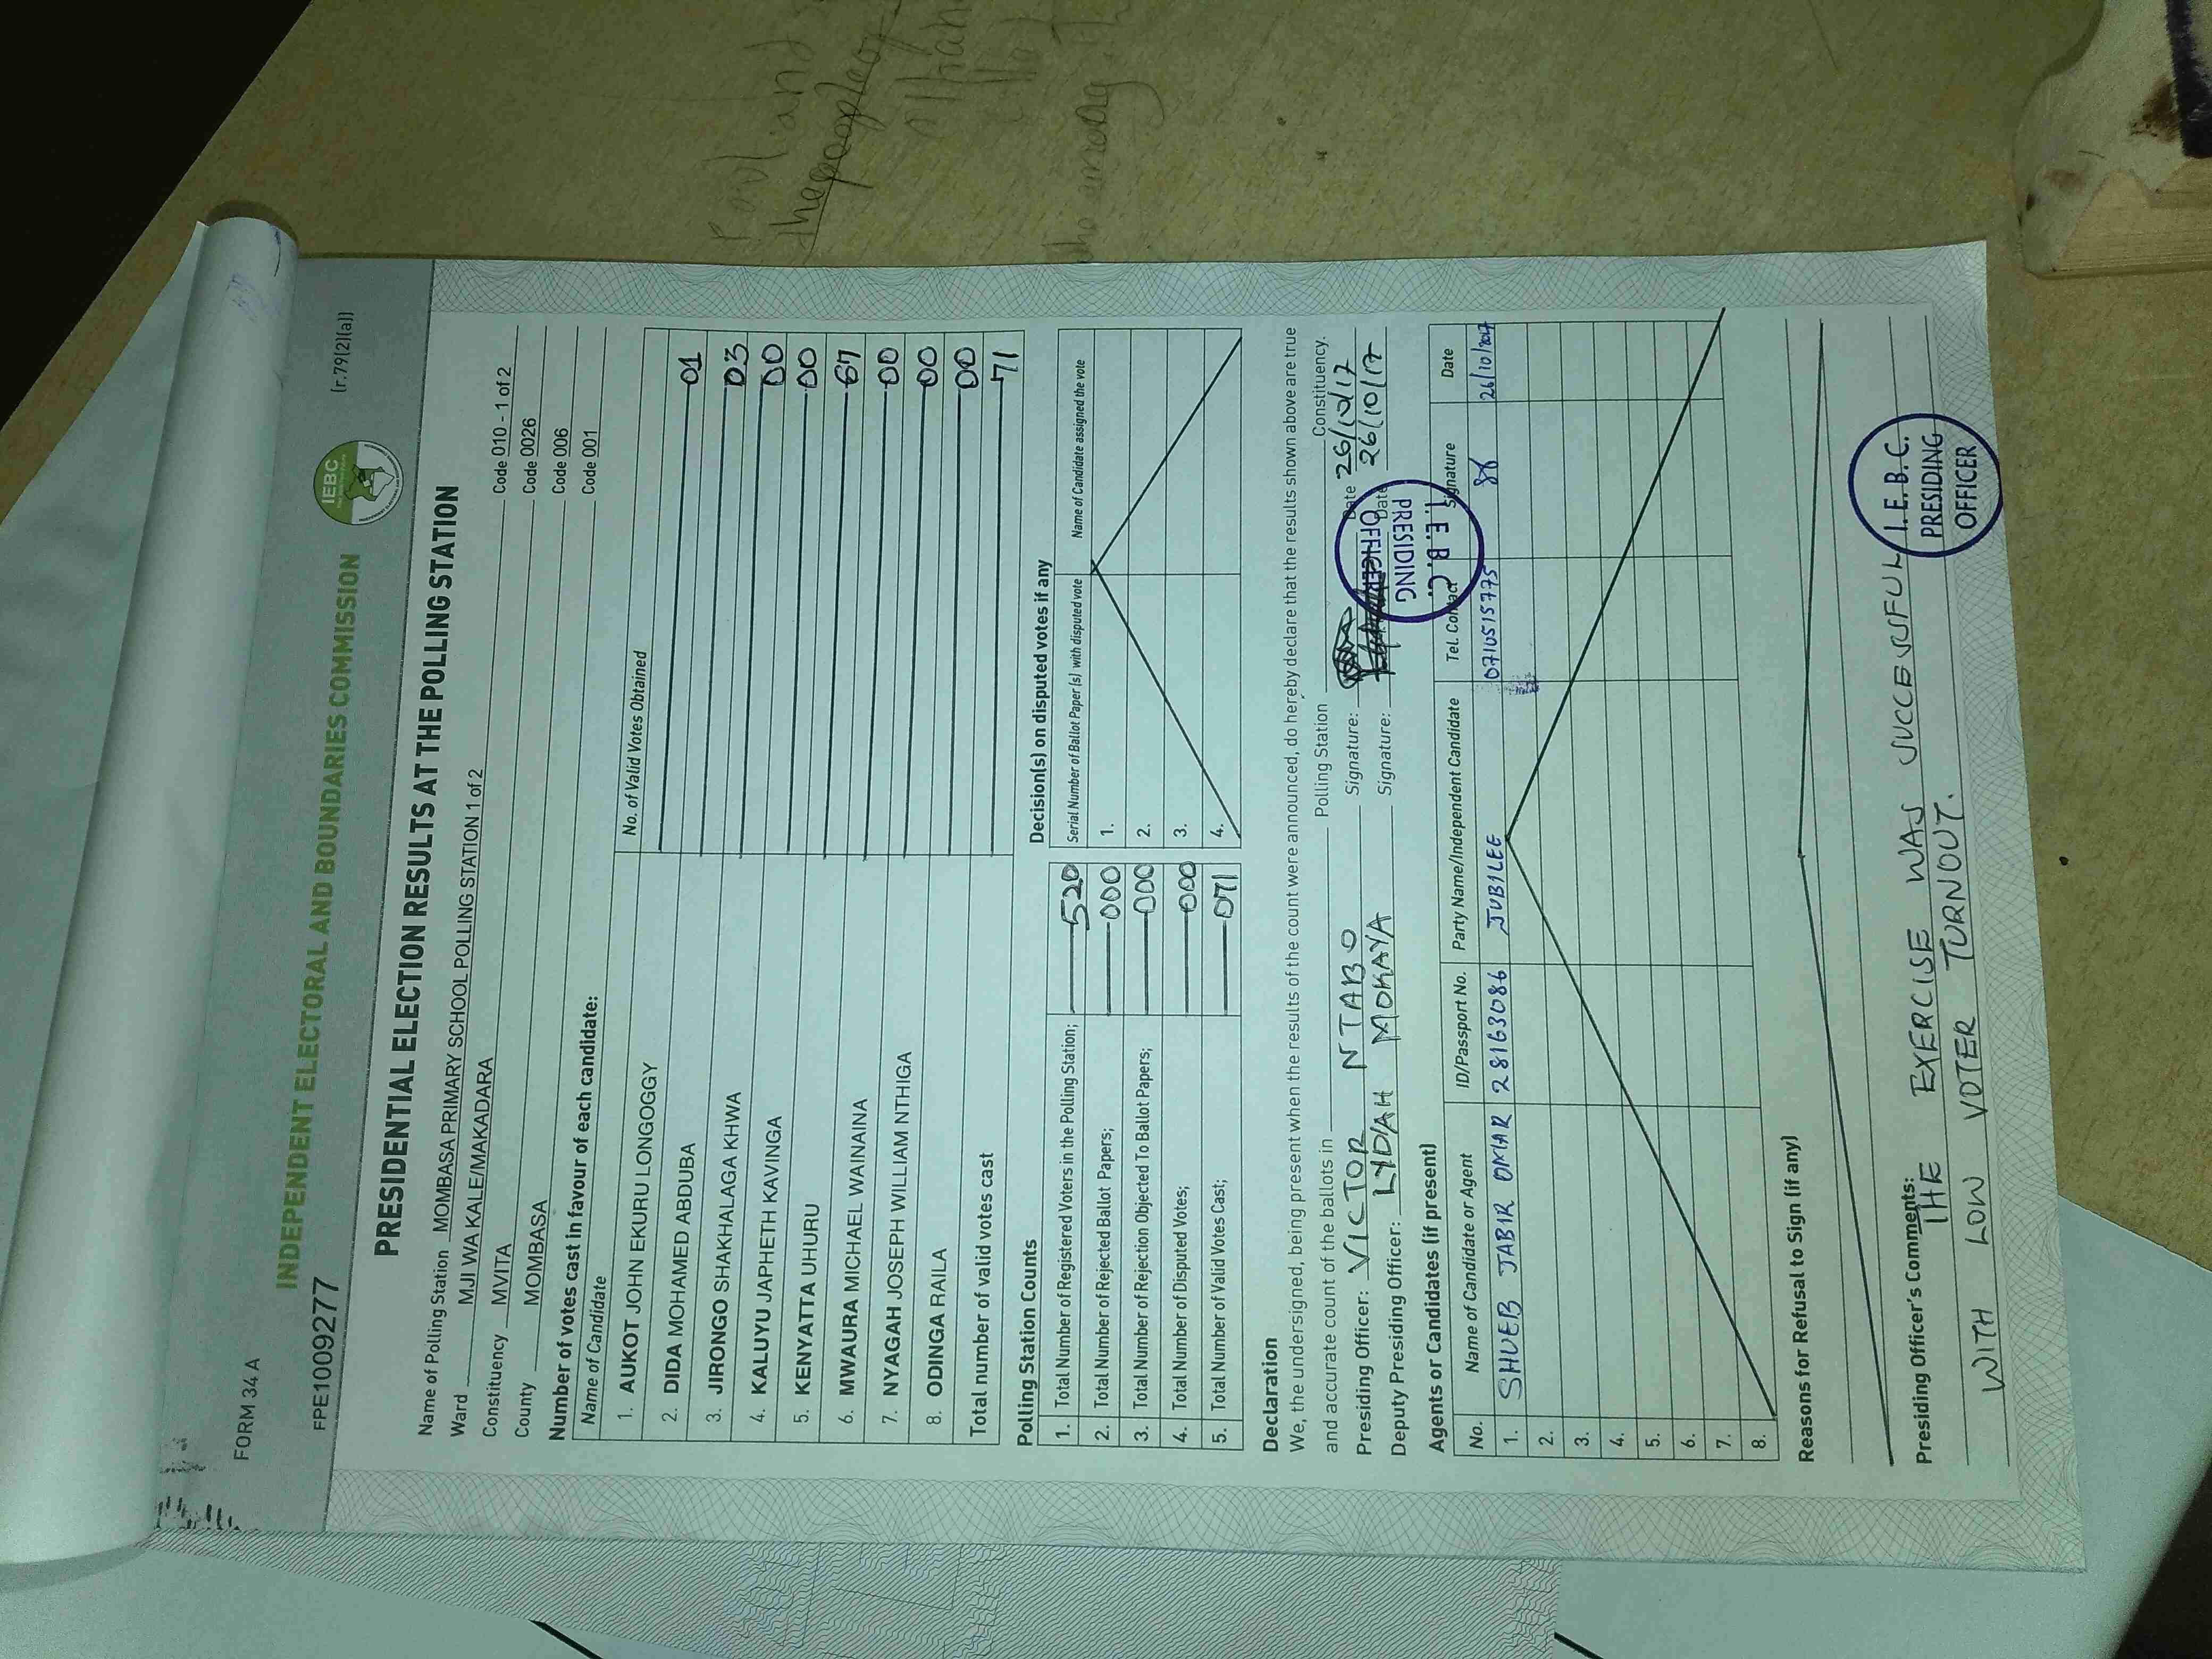 FORM 34 A
INDEPENDENT ELECTORAL AND BOUNDARIES COMMISSION
IEBC
(r.79(2)(a))
FPE1009277
PRESIDENTIAL ELECTION RESULTS AT THE POLLING STATION
Name of Polling Station MOMBASA PRIMARY SCHOOL POLLING STATION 1 of 2 Code 010 - 1 of 2
Ward MJI WA KALE/MAKADARA Code 0026
Constituency MVITA Code 006
County MOMBASA Code 001
Number of votes cast in favour of each candidate:
Name of Candidate No. of Valid Votes Obtained
1. AUKOT JOHN EKURU LONGOGGY 01
2. DIDA MOHAMED ABDUBA 03
3. JIRONGO SHAKHALAGA KHWA 00
4. KALUYU JAPHETH KAVINGA 00
5. KENYATTA UHURU 67
6. MWAURA MICHAEL WAINAINA 00
7. NYAGAH JOSEPH WILLIAM NTHIGA 00
8. ODINGA RAILA 00
Total number of valid votes cast 71
Polling Station Counts
1. Total Number of Registered Voters in the Polling Station; 520
2. Total Number of Rejected Ballot Papers; 000
3. Total Number of Rejection Objected To Ballot Papers; 000
4. Total Number of Disputed Votes; 000
5. Total Number of Valid Votes Cast; 071
Decision(s) on disputed votes if any
Serial Number of Ballot Paper (s) with disputed vote Name of Candidate assigned the vote
1.
2.
3.
4.
Declaration
We, the undersigned, being present when the results of the count were announced, do hereby declare that the results shown above are true
and accurate count of the ballots in Polling Station Constituency.
Presiding Officer: VICTOR NTABO Signature: Date 26/10/17
Deputy Presiding Officer: LYDIAH MOKAYA Signature: Date 26/10/17
I. E. B. C.
PRESIDING
OFFICER
Agents or Candidates (if present)
No. Name of Candidate or Agent ID/Passport No. Party Name/Independent Candidate Tel. Contact Signature Date
1. SHUEB JABIR OMAR 28163086 JUBILEE 0710515775 26/10/2017
2.
3.
4.
5.
6.
7.
8.
Reasons for Refusal to Sign (if any)
Presiding Officer's Comments:
THE EXERCISE WAS SUCCESSFUL
WITH LOW VOTER TURNOUT.
I. E. B. C.
PRESIDING
OFFICER